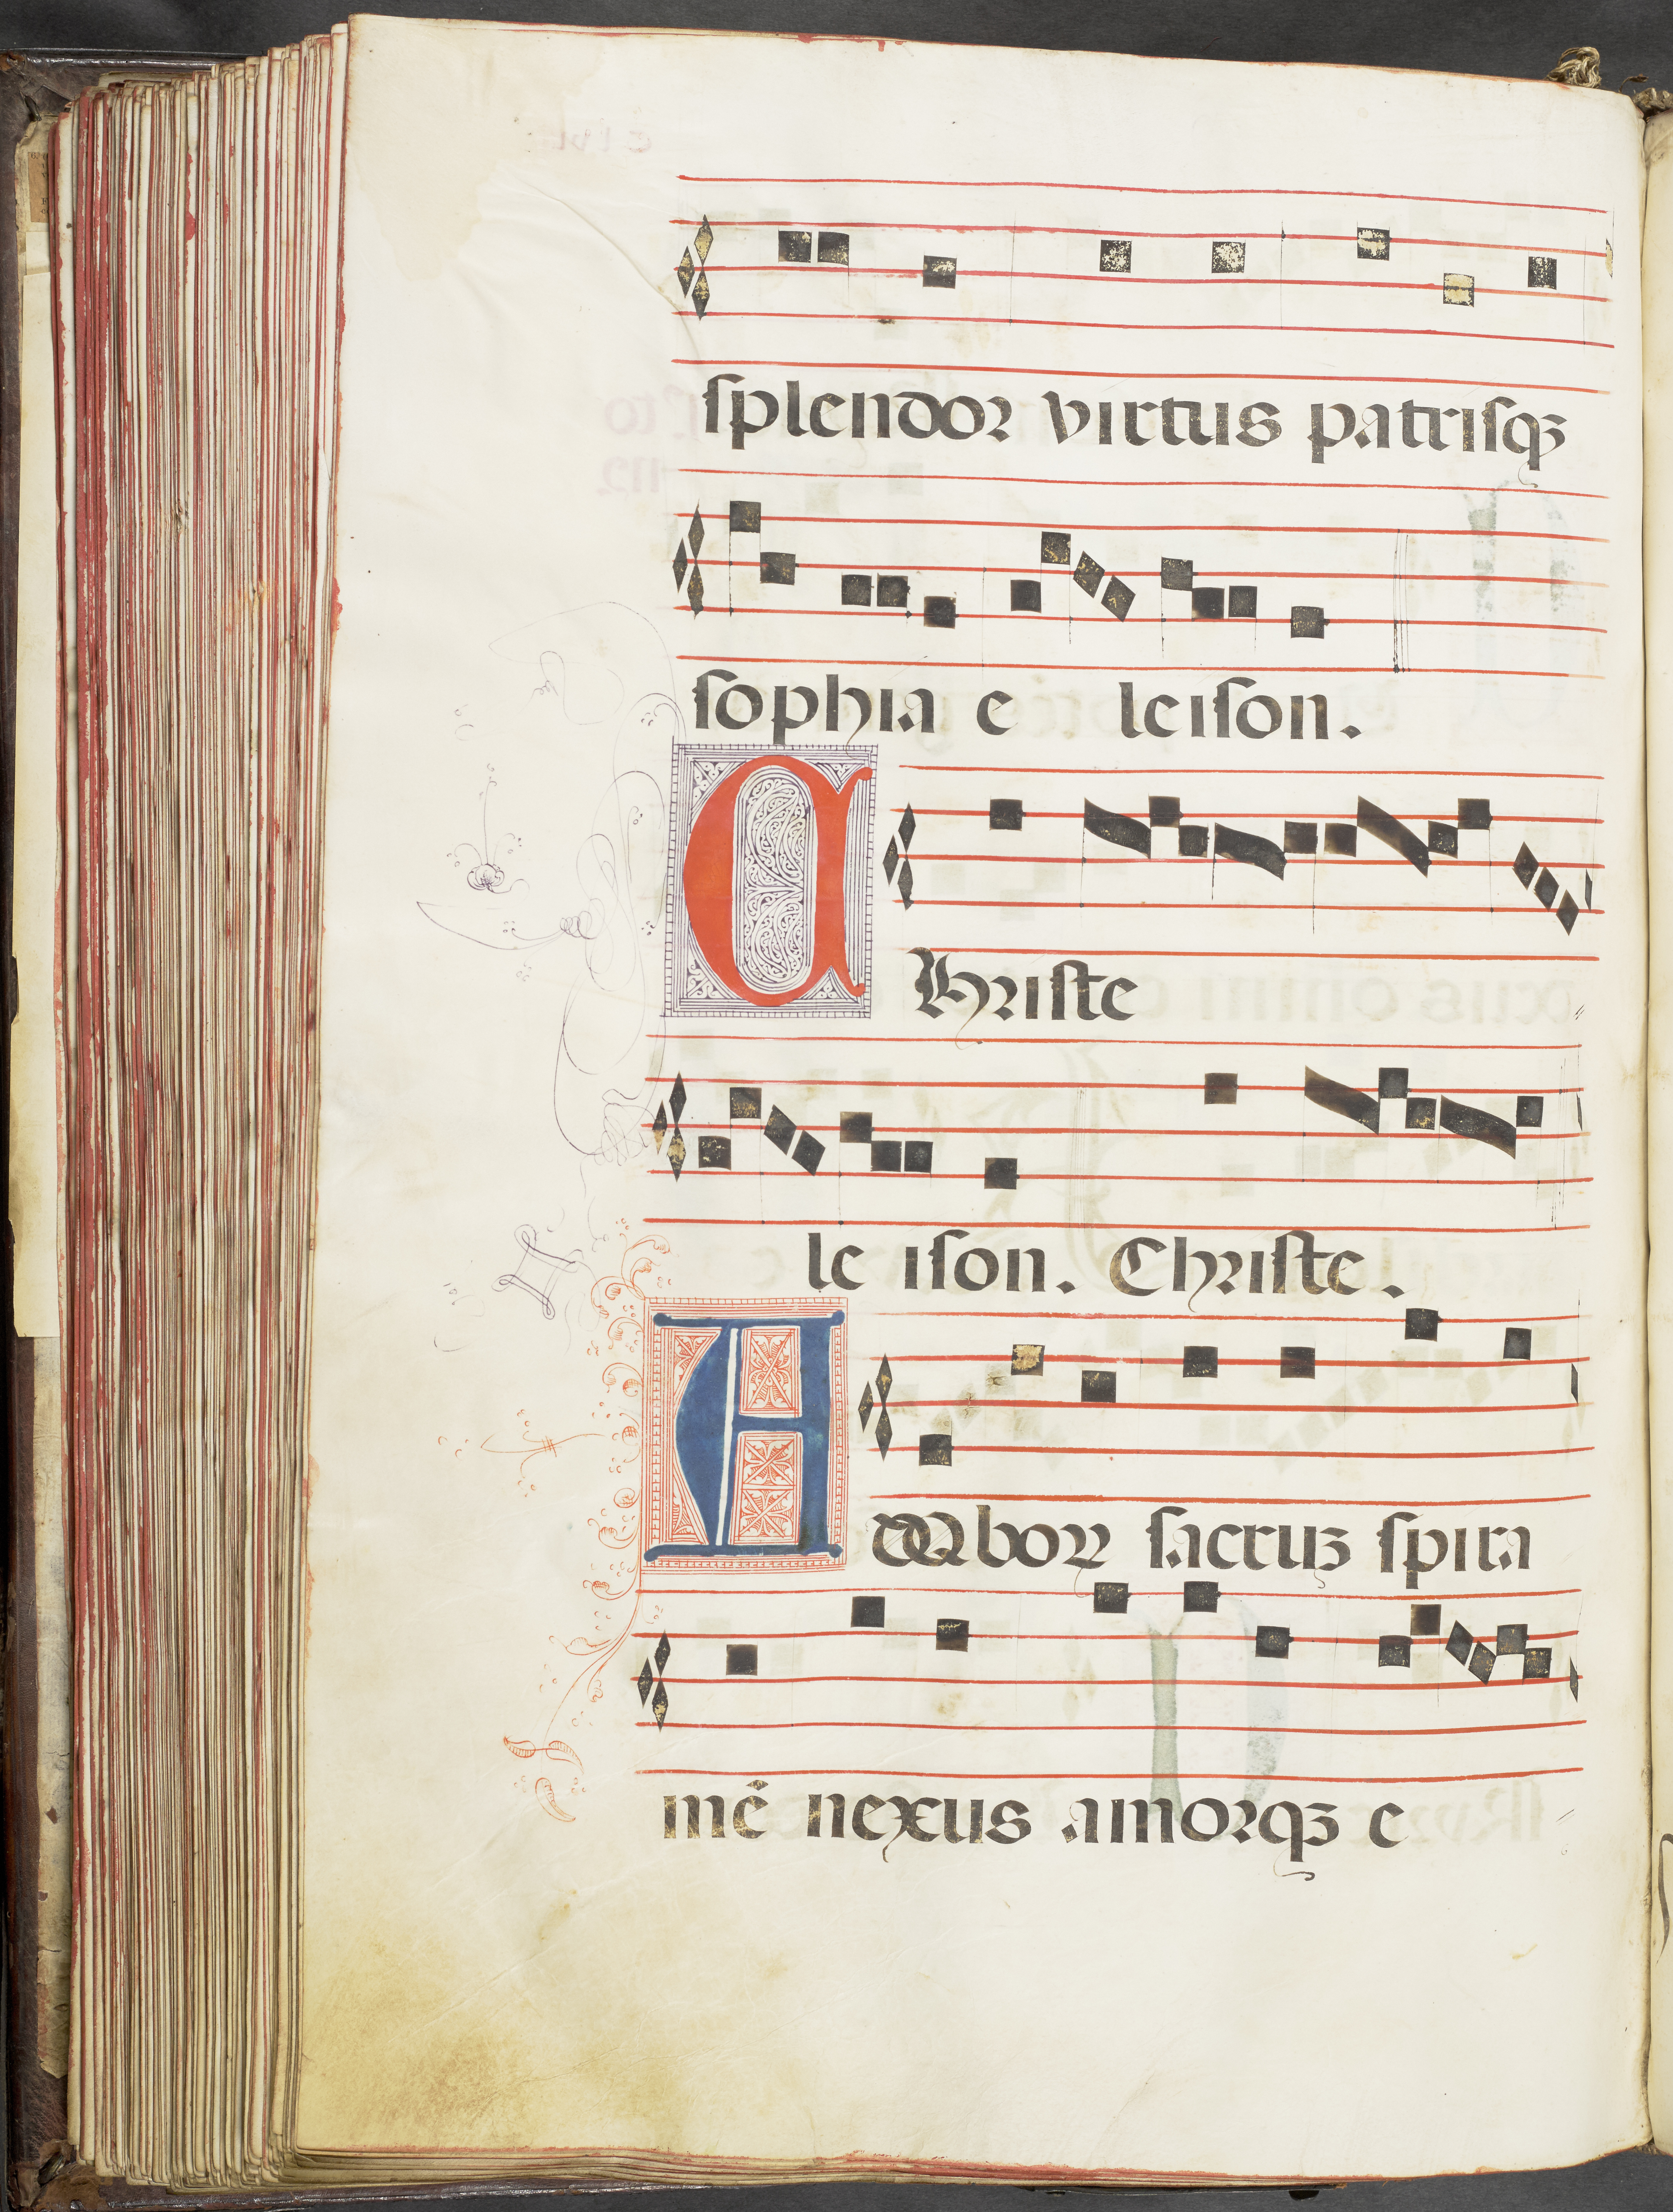 splendor virtus patrisqꝫ
sophia e leison.
CHriste
le ison. Christe.
Amborꝝ sacruꝫ spira
mē nexus amorqꝫ e